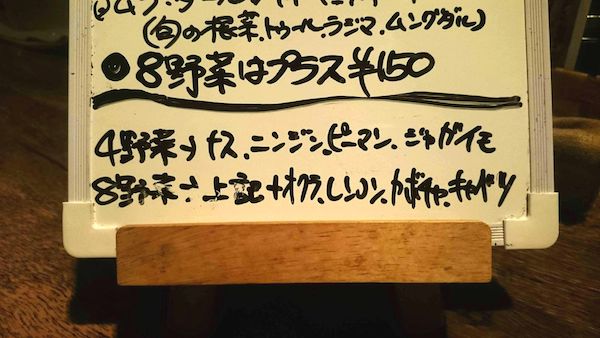 (旬の根菜、トゥール、ラジマ、ムングダル)
●8野菜はプラス¥150
4野菜→ナス、ニンジン、ピーマン、ジャガイモ
8野菜→上記+オクラ、レンコン、カボチャ、キャベツ